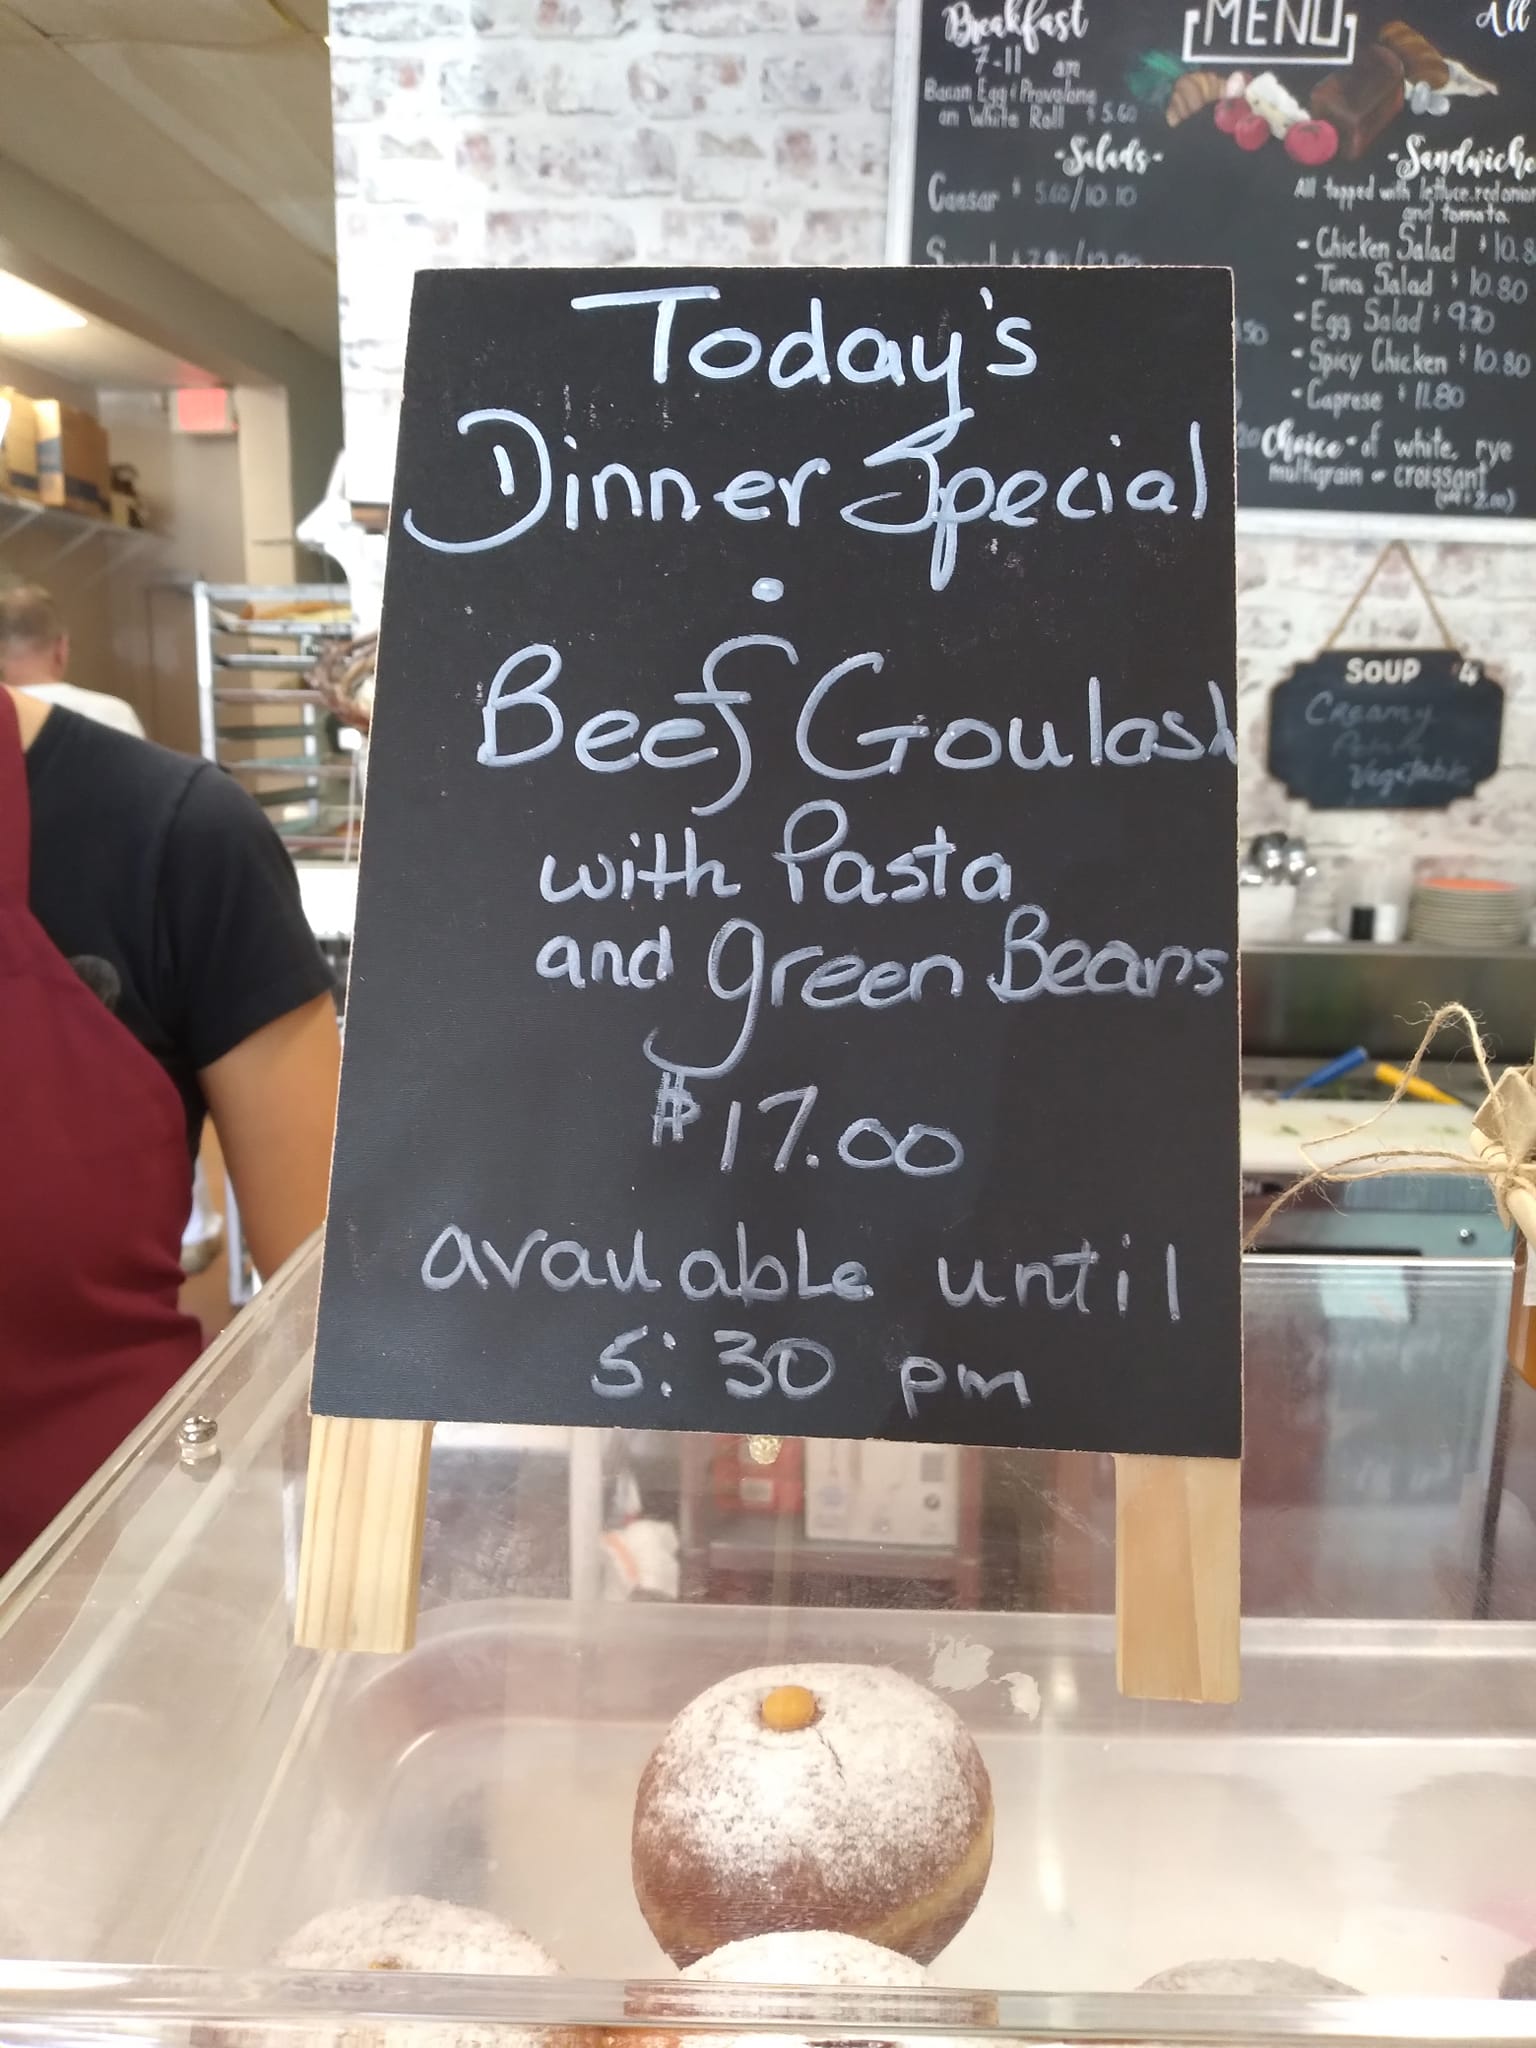 Today's
Dinner Special
Beef Goulash
with Pasta
and green Beans
$17.00
available until
5:30 pm
Breakfast
7-11 am
Bacon Egg & Provolone
on White Roll $5.60
-Salads-
Caesar $5.60/10.10
MENU
All
-Sandwiche
All topped with lettuce, red onion
and tomato.
- Chicken Salad $10.8
- Tuna Salad $10.80
- Egg Salad $9.70
- Spicy Chicken $10.80
- Caprese $11.80
Choice - of white, rye
multigrain or croissant
SOUP
Creamy
Vegetable